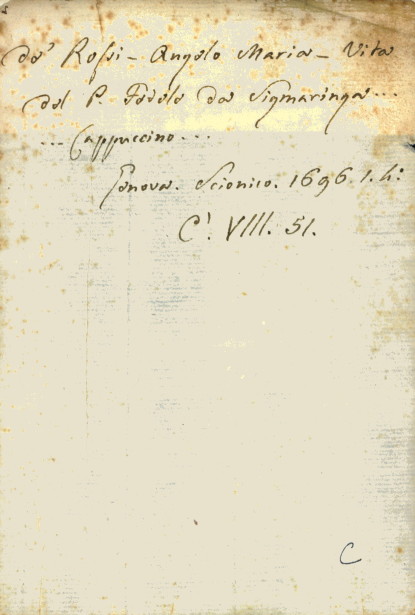 de' Rossi - Angelo Maria - Vita
del P. Fedele da Sigmaringa...
... Cappuccino...
Genova. Scionico. 1696. 1. 4:
C'. VIII. 51.
C